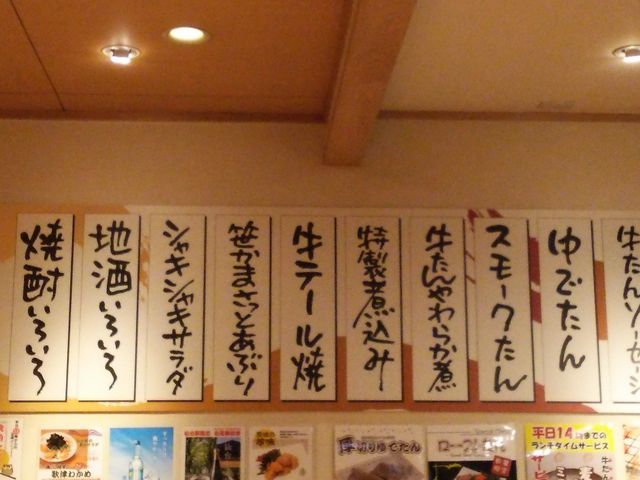 牛たんソーセージ
ゆでたん
スモークたん
牛たんやわらか煮
特製煮込み
牛テール焼
笹かまさっとあぶり
シャキシャキサラダ
地酒いろいろ
焼酎いろいろ
歌津わかめ
厚切りゆでたん
平日14時までの
ランチタイムサービス